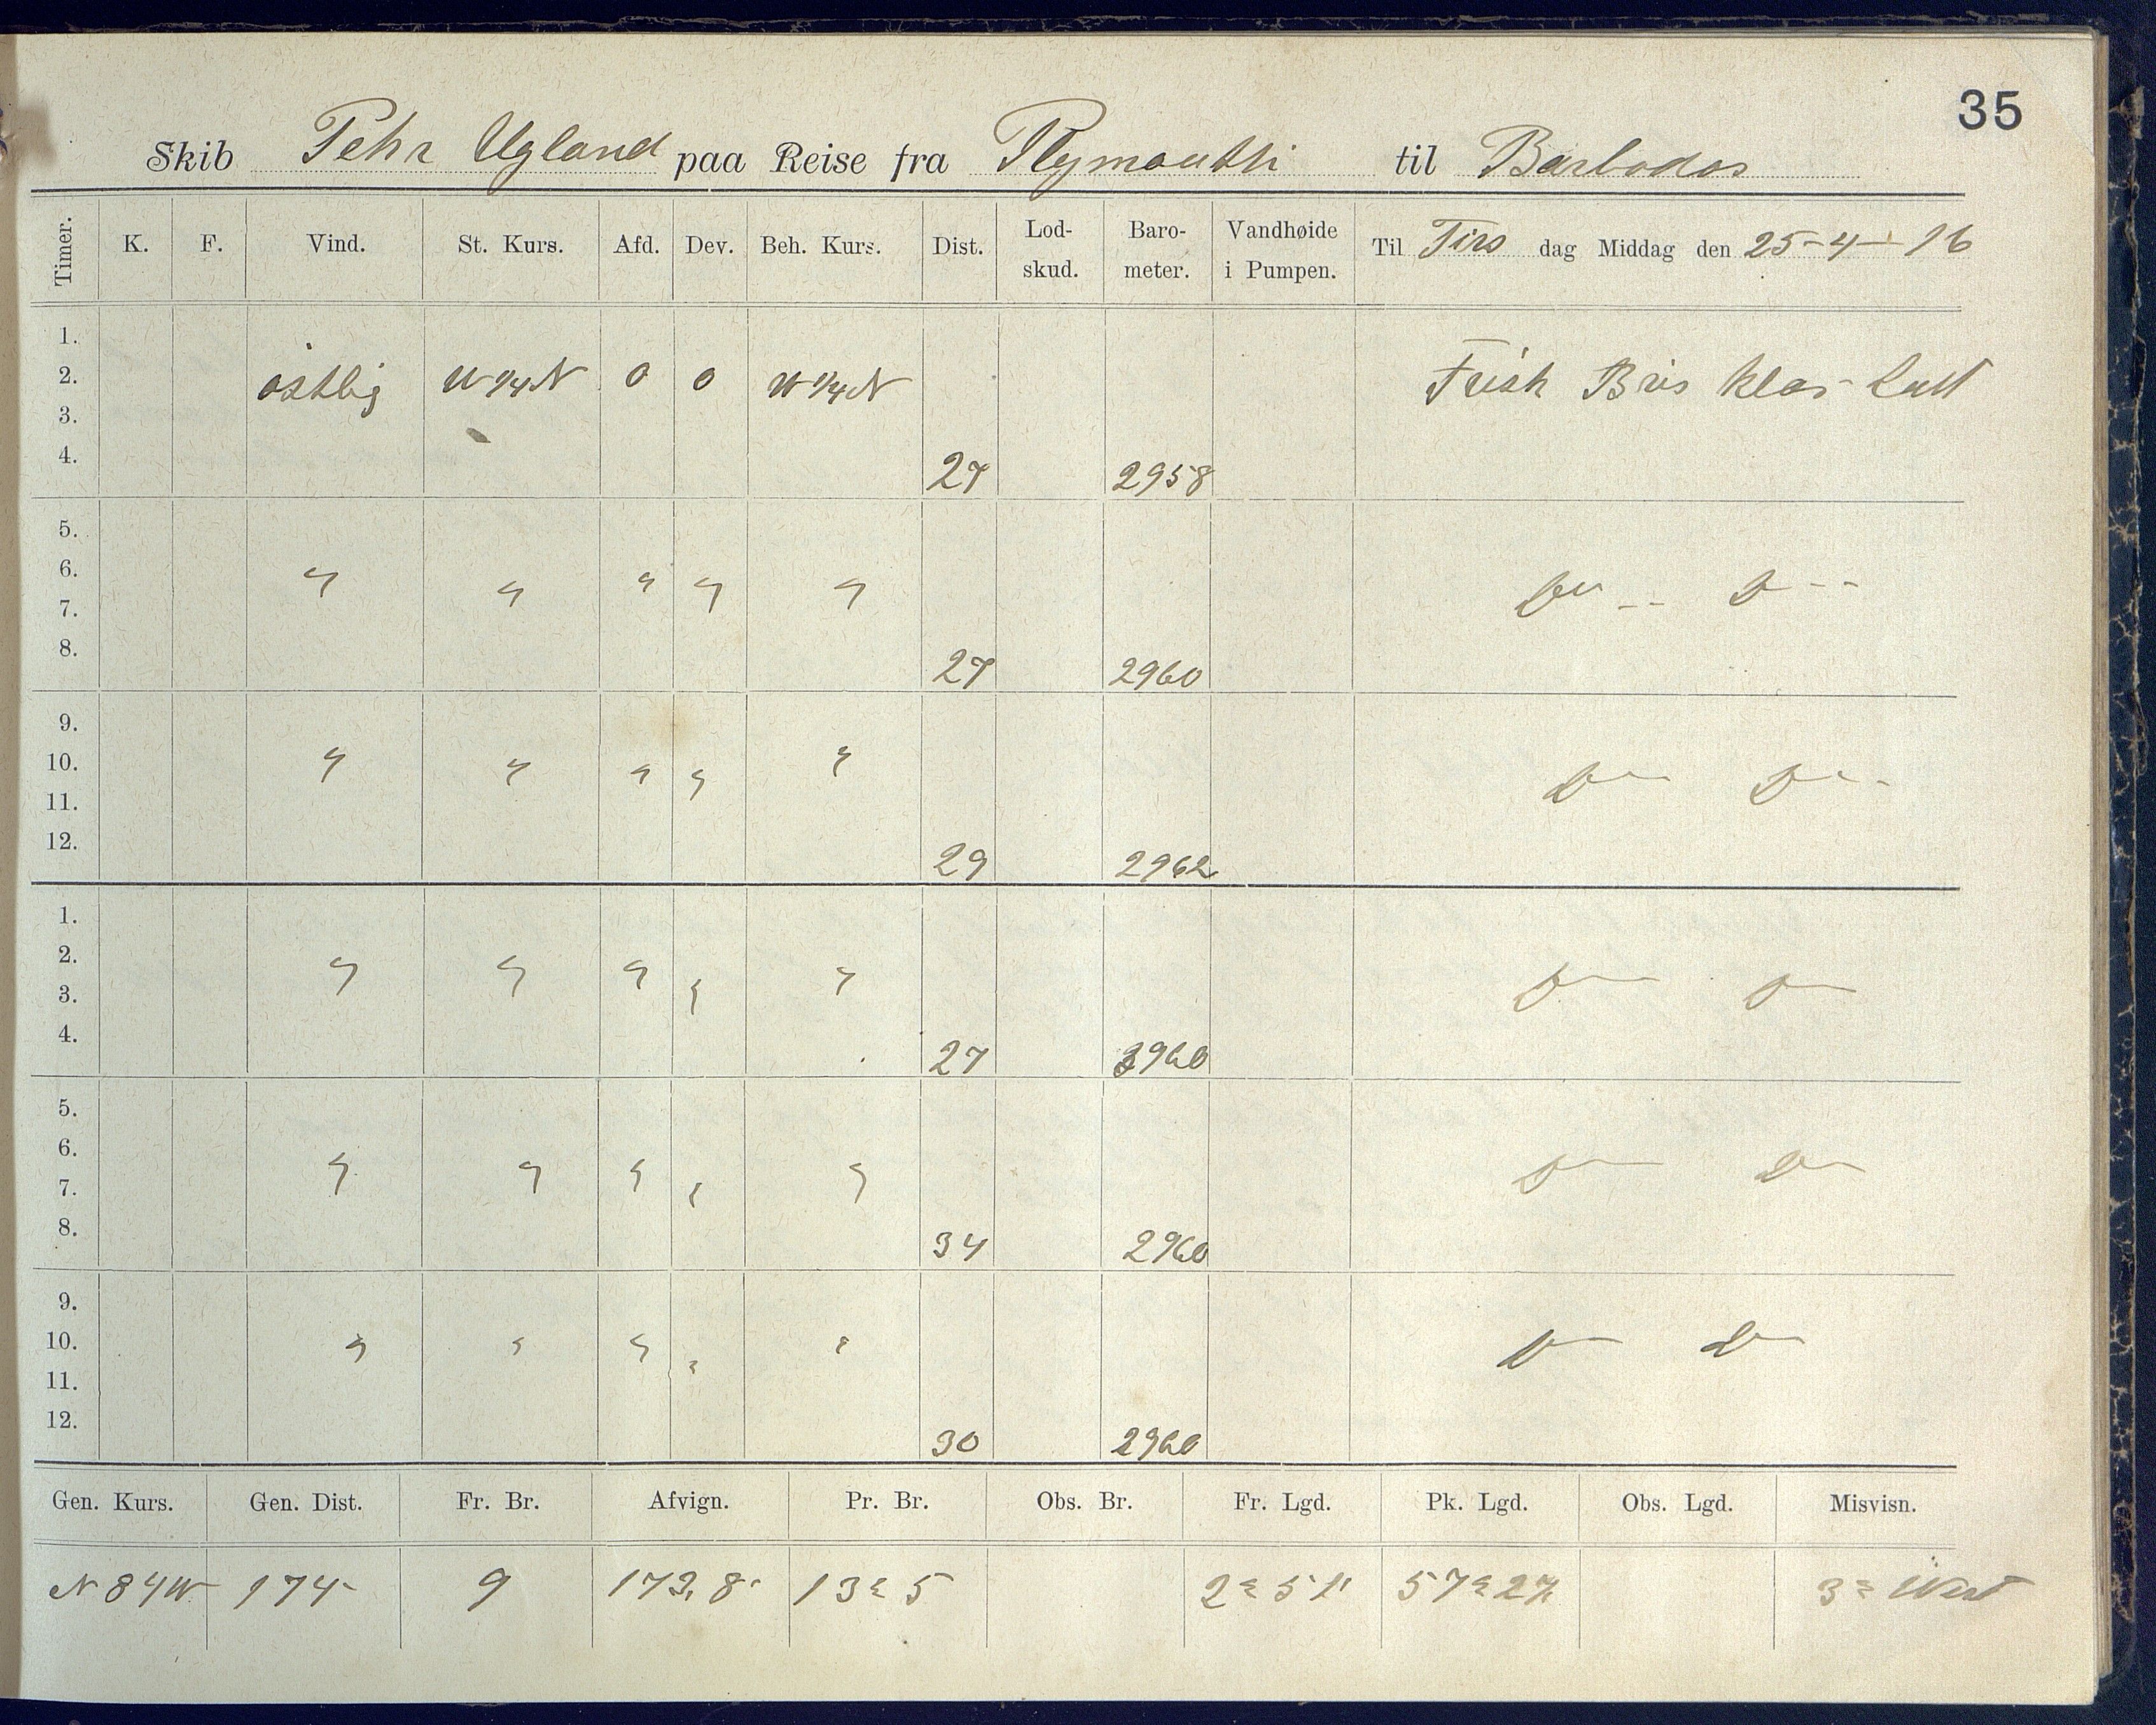 35
Skib Pehr Ugland paa Reise fra Plymouth til Barbados
Timer. K. F. Vind. St. Kurs. Afd. Dev. Beh. Kurs. Dist. Lod-skud. Baro-meter. Vandhøide i Pumpen. Til Tirs dag Middag den 25-4-16
1.
2. östlig W 1/4 N 0 0 W 1/4 N Frisk Bris klar luft
3.
4. 27 2958
5.
6. " " " " " Do -- Do --
7.
8. 27 2960
9.
10. " " " " " Do — Do —
11.
12. 29 2962
1.
2. " " " " " Do — Do —
3.
4. 27 2960
5.
6. " " " " " Do — Do —
7.
8. 34 2960
9.
10. " " " " " Do — Do —
11.
12. 30 2960
Gen. Kurs. Gen. Dist. Fr. Br. Afvign. Pr. Br. Obs. Br. Fr. Lgd. Pk. Lgd. Obs. Lgd. Misvisn.
N 84 W 174 9 173,8 13° 5 57° 27 3° West